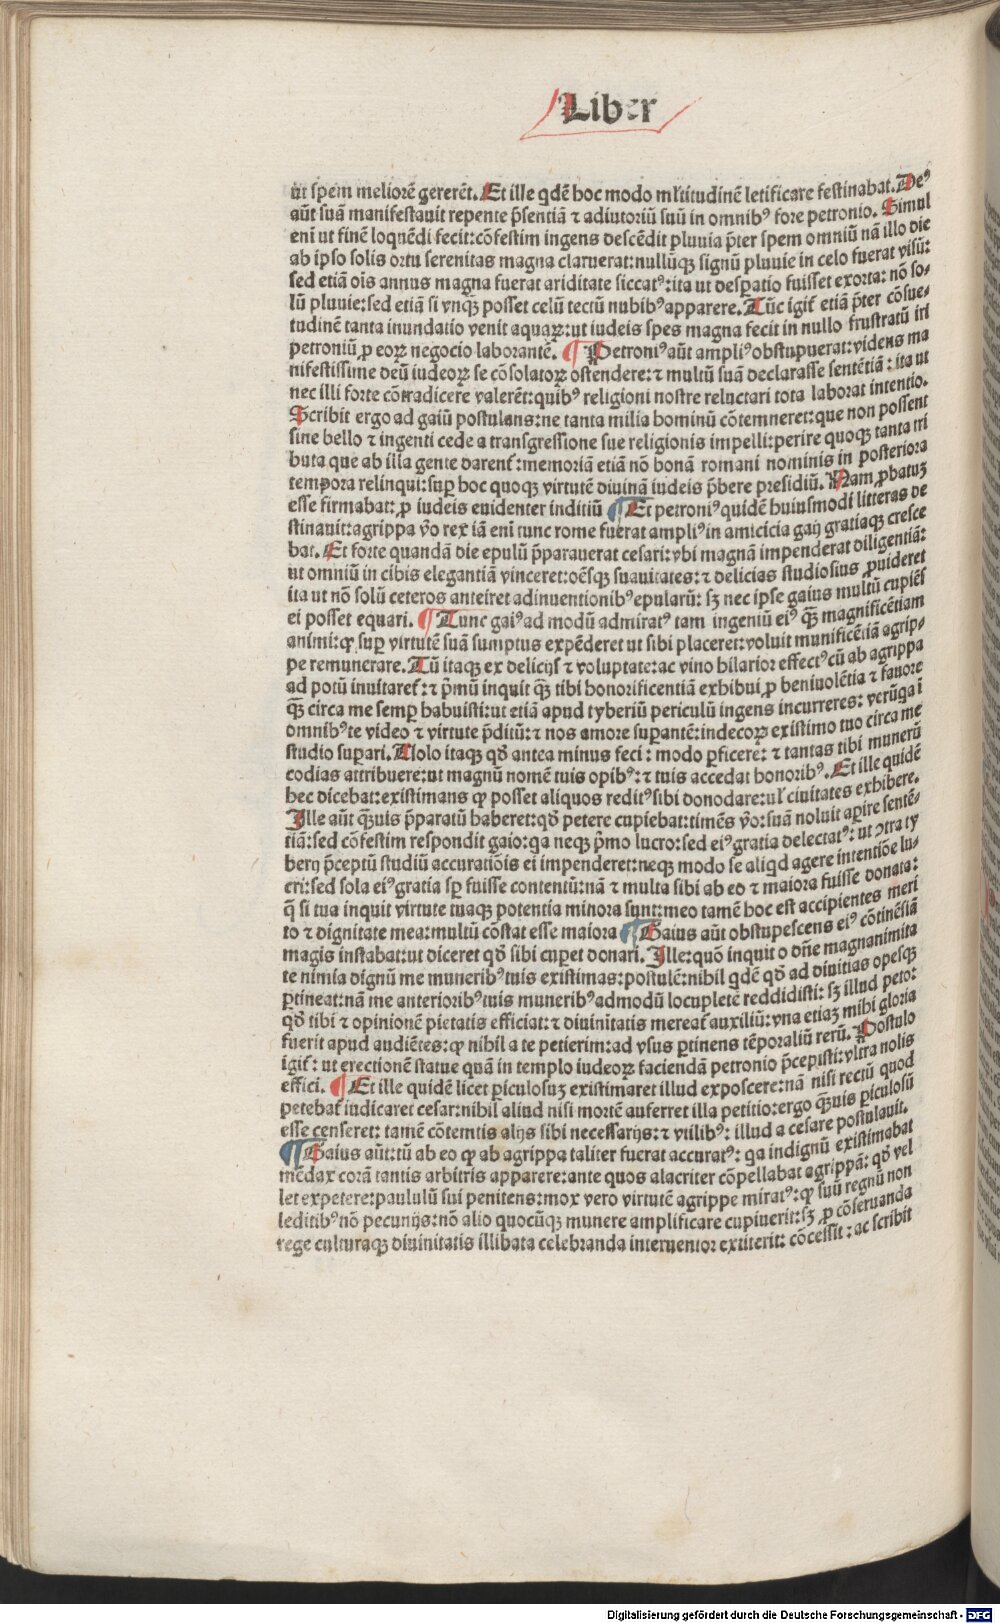 Liber
ut spem meliorē gererēt. Et ille qdē hoc modo mltitudinē letificare festinabat. Deꝰ
aūt suā manifestauit repente p̄sentiā ⁊ adiutoriū suū in omnibꝰ fore petronio. Simul
eni ut finē loquēdi fecit: cōfestim ingens descēdit pluuia p̄ter spem omniū nā illo die
ab ipso solis ortu serenitas magna claruerat: nullūqꝫ signū pluuie in celo fuerat visū:
sed etiā oīs annus magna fuerat ariditate siccatꝰ: ita ut desꝑatio fuisset exorta: nō so-
lū pluuie: sed etiā si vnqꝫ posset celū tectū nubibꝰ apparere. Tūc igit̄ etiā p̄ter cōsue-
tudinē tanta inundatio venit aquaꝝ: ut iudeis spes magna fecit in nullo frustratū iri
petroniū ꝓ eoꝝ negocio laborantē. ¶ Petroniꝰ aūt ampliꝰ obstupuerat: videns ma
nifestissime deū iudeoꝝ se cōsolatoꝝ ostendere: ⁊ multū suā declarasse sentētiā: ita ut
nec illi forte cōtradicere valerēt: quibꝰ religioni nostre reluctari tota laborat intentio.
Scribit ergo ad gaiū postulans: ne tanta milia hominū cōtemneret: que non possent
sine bello ⁊ ingenti cede a transgressione sue religionis impelli: perire quoqꝫ tanta tri
buta que ab illa gente darent̄: memoriā etiā nō bonā romani nominis in posteriora
tempora relinqui: suꝑ hoc quoqꝫ virtutē diuinā iudeis p̄bere presidiū. Nam ꝓbatuꝫ
esse firmabat: ꝓ iudeis euidenter inditiū ¶ Et petroniꝰ quidē huiusmodi litteras de
stinauit: agrippa ṽo rex iā enī tunc rome fuerat ampliꝰ in amicicia gaij gratiaqꝫ cresce
bat. Et forte quandā die epulū p̄parauerat cesari: vbi magnā impenderat diligentiā:
ut omniū in cibis elegantiā vinceret: oēsqꝫ suauitates: ⁊ delicias studiosius ꝓuideret
ita ut nō solū ceteros anteiret adinuentionibꝰ epularū: sꝫ nec ipse gaius multū cupiēs
ei posset equari. ¶ Tunc gaiꝰ ad modū admiratꝰ tam ingeniū eiꝰ qꝫ̄ magnificētiam
animi: ꝙ suꝑ virtutē suā sumptus expēderet ut sibi placeret: voluit munificētiā agrip-
pe remunerare. Tū itaqꝫ ex delicijs ⁊ voluptate: ac vino hilarior effectꝰ cū ab agrippa
ad potū inuitaret̄: ⁊ p̄mū inquit qꝫ̄ tibi honorificentiā exhibui ꝓ beniuolētia ⁊ fauore
qꝫ̄ circa me semꝑ habuisti: ut etiā apud tyberiū periculū ingens incurreres: verūga ī
omnibꝰ te video ⁊ virtute p̄ditū: ⁊ nos amore suꝑantē: indecoꝝ existimo tuo circa me
studio suꝑari. Uolo itaqꝫ qđ antea minus feci: modo ꝑficere: ⁊ tantas tibi munerū
codias attribuere: ut magnū nomē tuis opibꝰ: ⁊ tuis accedat honoribꝰ. Et ille quidē
hec dicebat: existimans ꝙ posset aliquos reditꝰ sibi donodare: ul̄ ciuitates exhibere.
Ille aūt qꝫ̄uis p̄paratū haberet: qđ petere cupiebat: timēs ṽo: suā noluit aꝑire sentē-
tiā: sed cōfestim respondit gaio: qa neqꝫ p̄mo lucro: sed eiꝰ gratia delectatꝰ: ut ↄtra ty
berij p̄ceptū studiū accuratiōis ei impenderet: neqꝫ modo se aliqd agere intentiōe lu-
cri: sed sola eiꝰ gratia sꝑ fuisse contentū: nā ⁊ multa sibi ab eo ⁊ maiora fuisse donata:
q̄ si tua inquit virtute tuaqꝫ potentia minora sunt: meo tamē hoc est accipientes meri
to ⁊ dignitate mea: multū cōstat esse maiora ¶ Gaius aūt obstupescens eiꝰ cōtinēsiā
magis instabat: ut diceret qđ sibi cuꝑet donari. Ille: quō inquit o dn̄e magnanimita
te nimia dignū me muneribꝰ tuis existimas: postulē: nihil qdē qđ ad diuitias opesqꝫ
ꝑtineat: nā me anterioribꝰ tuis muneribꝰ admodū locupletē reddidisti: sꝫ illud peto:
qđ tibi ⁊ opinionē pietatis efficiat: ⁊ diuinitatis mereat̄ auxiliū: vna etiaꝫ mihi gloria
fuerit apud audiētes: ꝙ nihil a te petierim: ad vsus ꝑtinens tēporaliū rerū. Postulo
igit̄: ut erectionē statue quā in templo iudeoꝝ faciendā petronio p̄cepisti: vltra nolis
effici. ¶ Et ille quidē licet ꝑiculosuꝫ existimaret illud exposcere: nā nisi rectū quod
petebat̄ iudicaret cesar: nihil aliud nisi mortē auferret illa petitio: ergo qꝫ̄uis ꝑiculosū
esse censeret: tamē cōtemtis alijs sibi necessarijs: ⁊ vtilibꝰ: illud a cesare postulauit.
¶ Gaius aūt: tū ab eo ꝙ ab agrippa taliter fuerat accuratꝰ: qa indignū existimabat
mēdax corā tantis arbitris apparere: ante quos alacriter cōpellabat agrippā: qđ vel
let expetere: paululū sui penitens: mox vero virtutē agrippe miratꝰ: ꝙ suū regnū non
leditibꝰ nō pecunijs: nō alio quocūqꝫ munere amplificare cupiuerit: sꝫ ꝓ cōseruanda
rege culturaqꝫ diuinitatis illibata celebranda interuentor extiterit: cōcessit: ac scribit
Digitalisierung gefördert durch die Deutsche Forschungsgemeinschaft - DFG